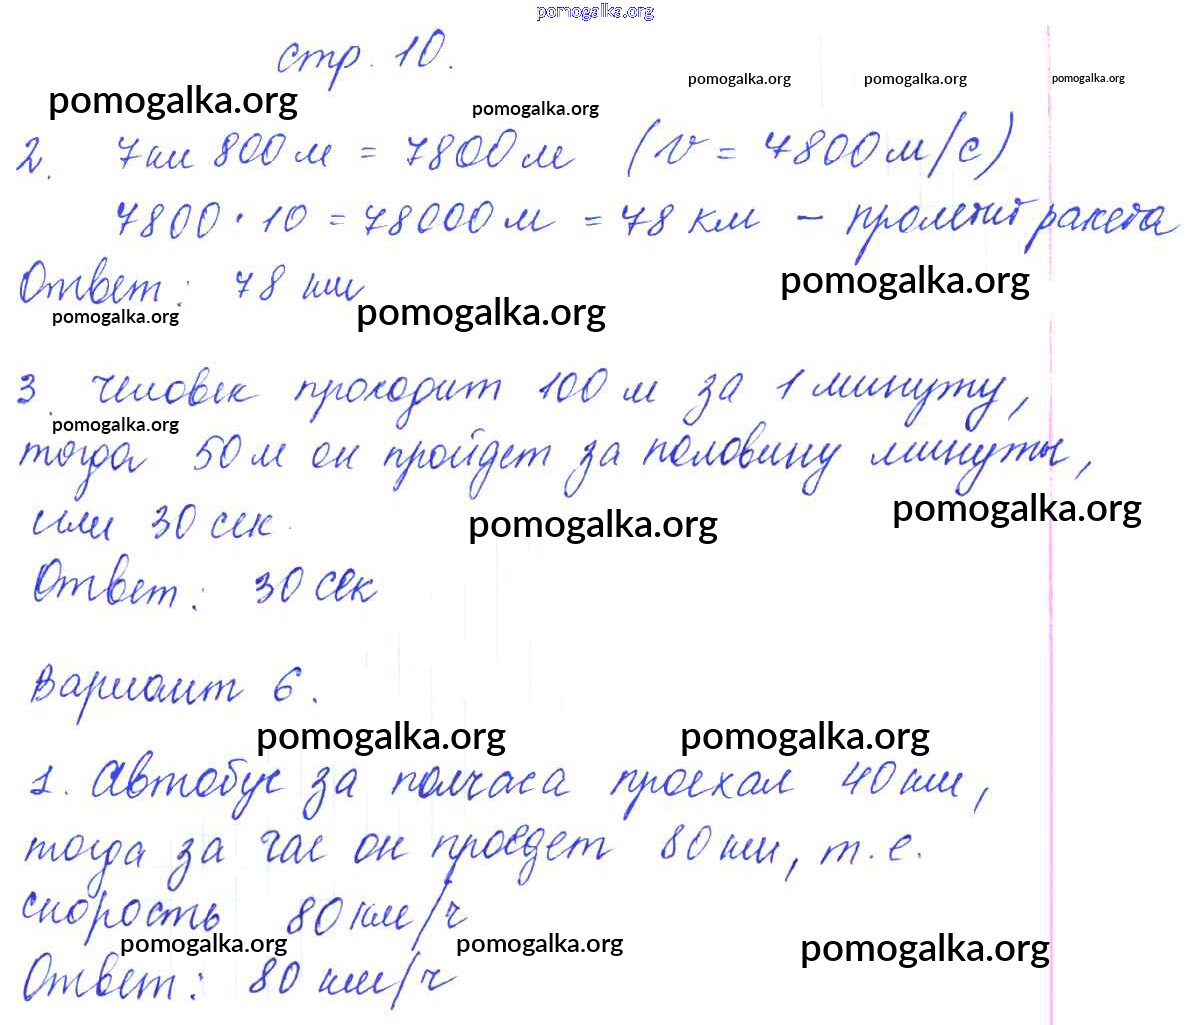 pomogalka.org
стр. 10.
pomogalka.org pomogalka.org pomogalka.org
pomogalka.org pomogalka.org
2. 7км 800м = 7800м (v = 7800м/с)
7800 · 10 = 78000м = 78 км - пролетит ракета
pomogalka.org
Ответ: 78 км
pomogalka.org pomogalka.org
3. Человек проходит 100 м за 1 минуту,
pomogalka.org
тогда 50м он пройдет за половину минуты,
или 30 сек.
pomogalka.org pomogalka.org
Ответ: 30 сек
Вариант 6.
pomogalka.org pomogalka.org
1. Автобус за полчаса проехал 40 км,
тогда за час он проедет 80 км, т.е.
скорость 80 км/ч
pomogalka.org pomogalka.org pomogalka.org
Ответ: 80 км/ч